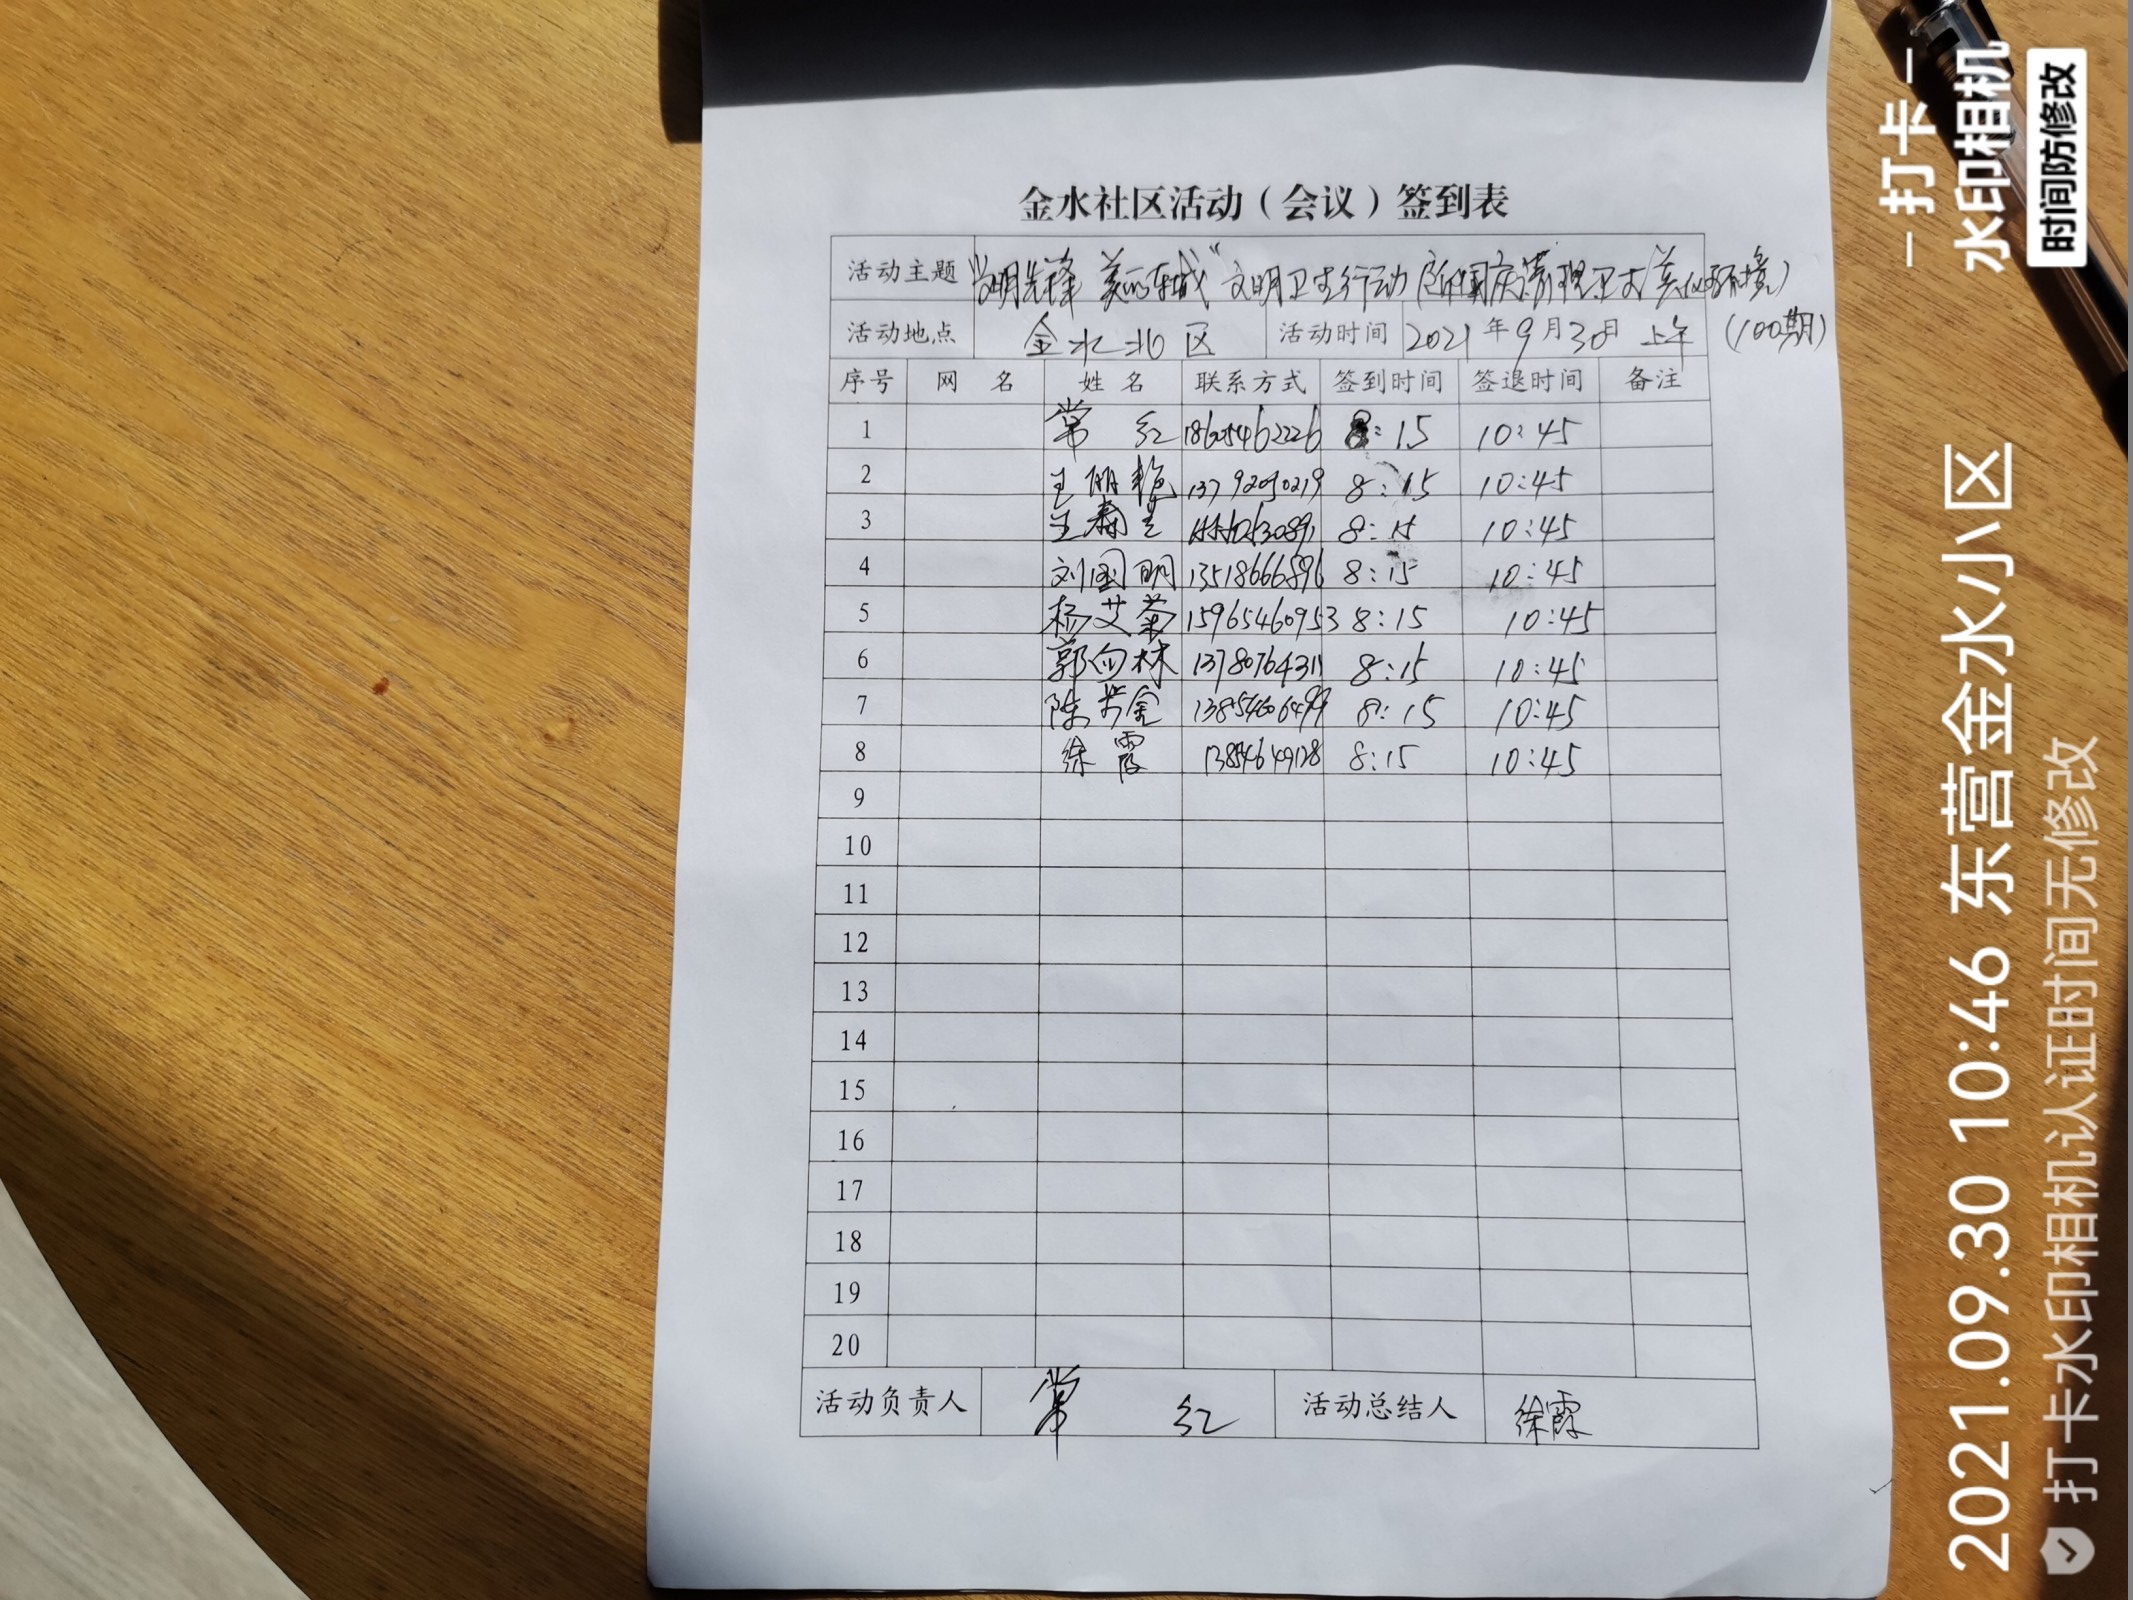 金水社区活动（会议）签到表
活动主题 文明先锋 美丽东城" 文明卫生行动 (迎国庆清理卫生美化环境)
活动地点 金水北区 活动时间 2021年9月30日 上午 (100期)
序号 网 名 姓 名 联系方式 签到时间 签退时间 备注
1 常 红 8:15 10:45
2 王丽艳 13792090219 8:15 10:45
3 8:15 10:45
4 刘国明 13518666896 8:15 10:45
5 杨艾菊 15965460953 8:15 10:45
6 郭向林 13780764311 8:15 10:45
7 陈芳金 13854606499 8:15 10:45
8 徐霞 8:15 10:45
9
10
11
12
13
14
15
16
17
18
19
20
活动负责人 常 红 活动总结人 徐霞
打卡
水印相机
时间防修改
2021.09.30 10:46 东营金水小区
打卡水印相机认证时间无修改